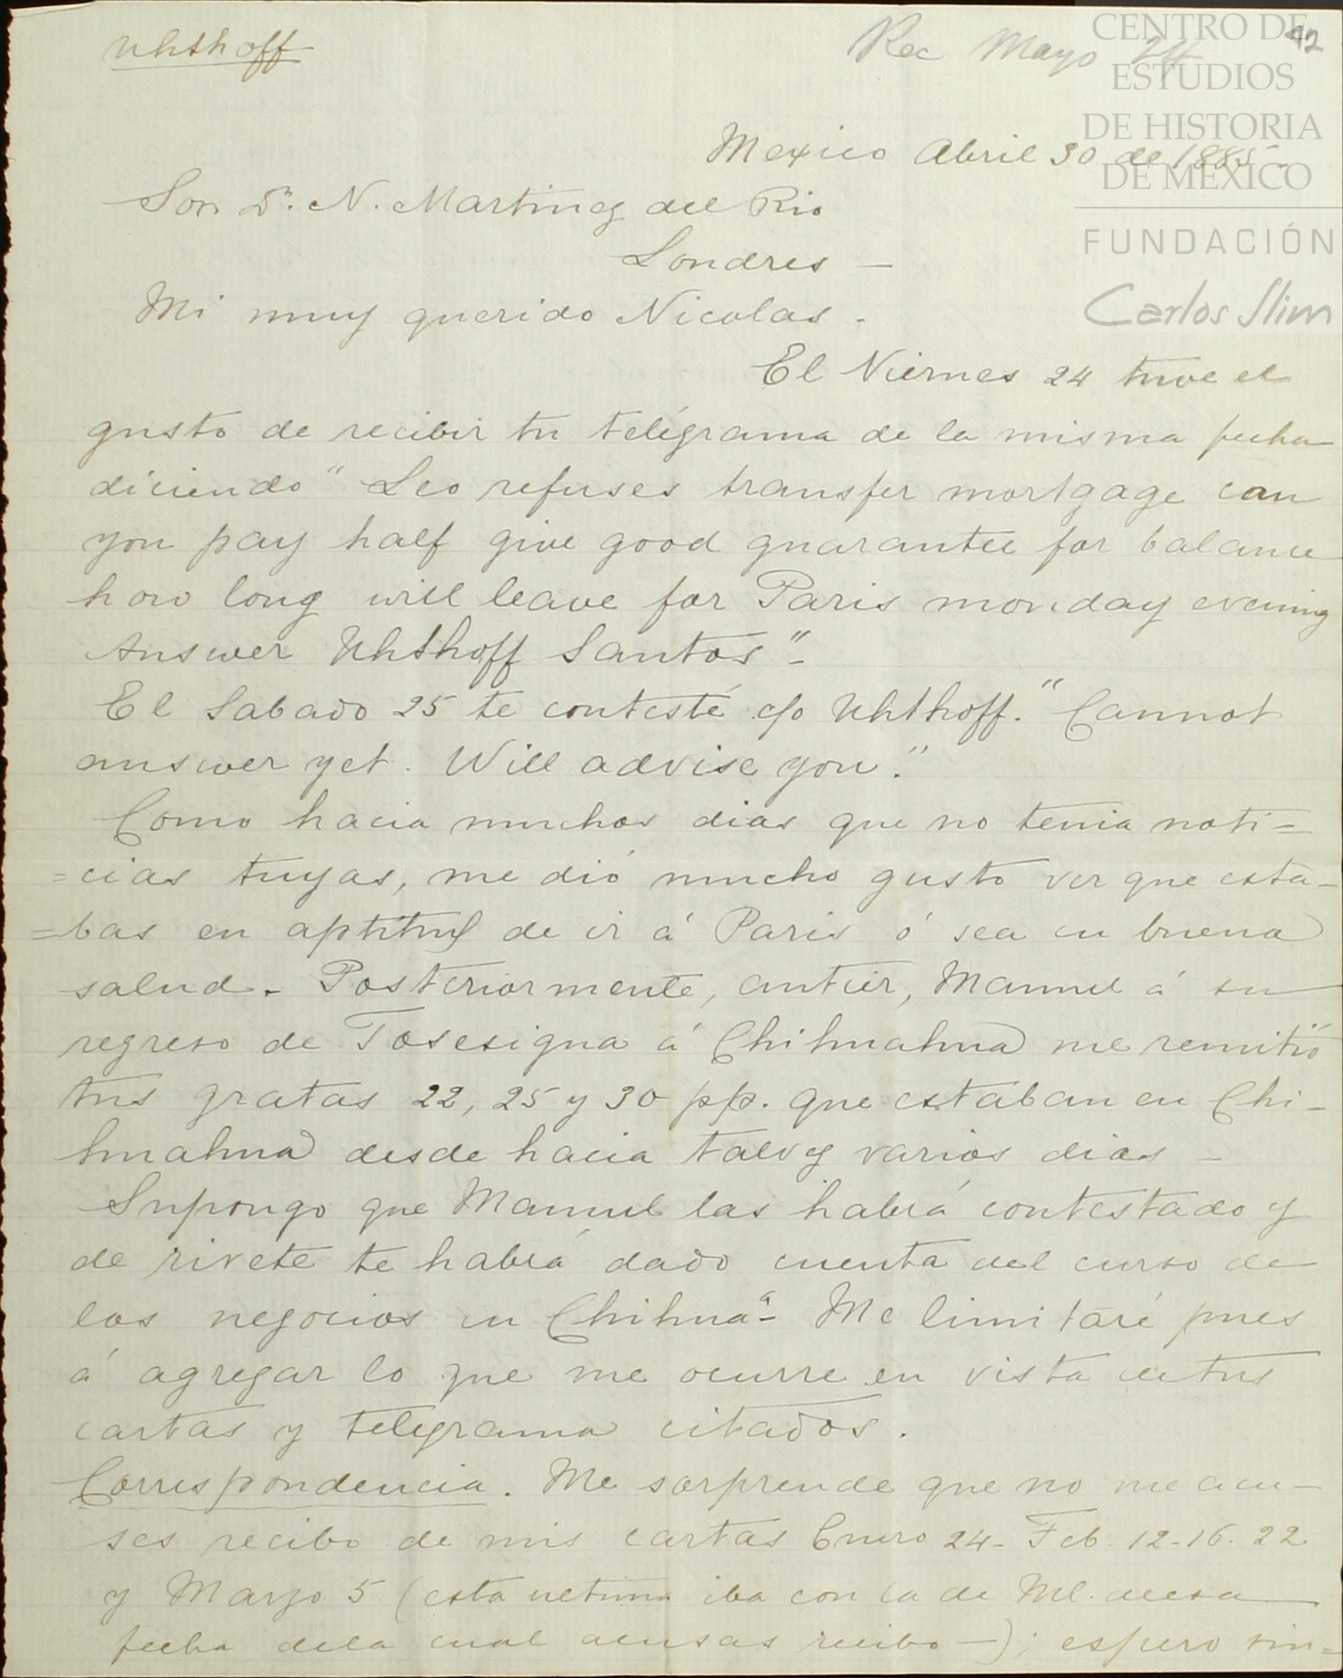 Uhthoff
Rec Mayo 24
42
CENTRO DE
ESTUDIOS
DE HISTORIA
DE MÉXICO
FUNDACIÓN
Carlos Slim
Mexico Abril 30 de 1885 -
Sor. Dn. N. Martinez del Rio
Londres -
Mi muy querido Nicolas -
El Viernes 24 tuve el
gusto de recibir tu telégrama de la misma fecha
diciendo "Leo refuses transfer mortgage can
you pay half give good guarantee for balance
how long will leave for Paris monday evening
Answer Uhthoff Santos" -
El Sabado 25 te contesté c/o Uhthoff. "Cannot
answer yet. Will advise you."
Como hacia muchos dias que no tenia noti=
=cias tuyas, me dió mucho gusto ver que esta-
=bas en aptitud de ir á Paris ó sea en buena
salud. Posteriormente, antier, Manuel á su
regreso de Tosesigua á Chihuahua me remitió
tus gratas 22, 25 y 30 pp. que estaban en Chi-
huahua desde hacia talvez varios dias -
Supongo que Manuel las habrá contestado y
de rivete te habrá dado cuenta del curso de
los negocios en Chihuaa - Me limitaré pues
á agregar lo que me ocurre en vista de tus
cartas y telegrama citados.
Correspondencia. Me sorprende que no me acu-
ses recibo de mis cartas Enero 24 - Feb. 12-16. 22
y Marzo 5 (esta ultima iba con la de Ml. de esa
fecha de la cual acusas recibo -); espero sin=